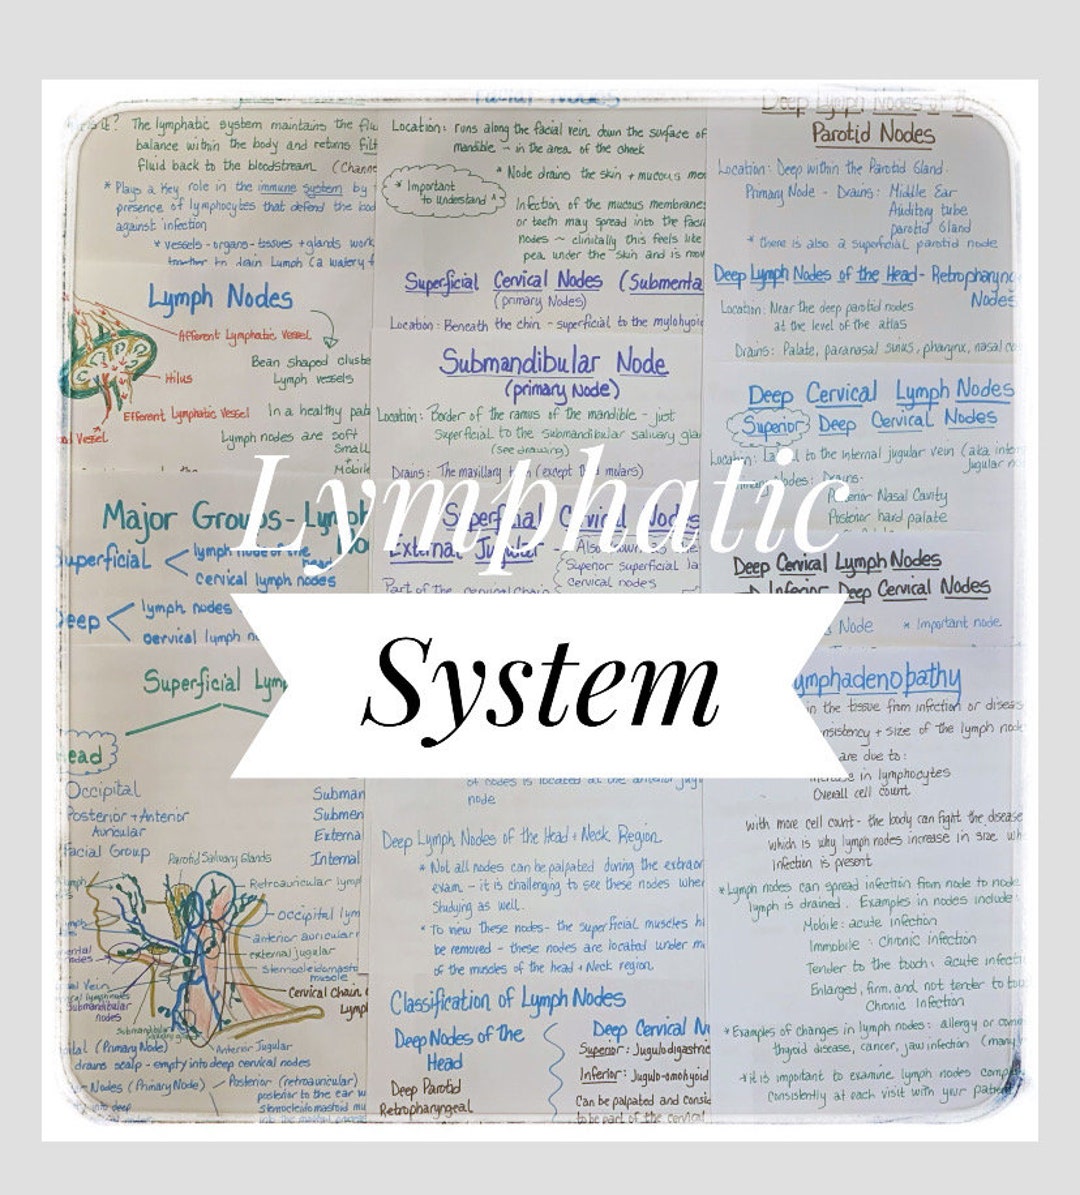 Lymphatic
System
is it? The lymphatic system maintains the flu
balance within the body and returns filt
fluid back to the bloodstream. (Chann
* Plays a Key role in the immune system by
presence of lymphocytes that defend the bod
against infection
* vessels - organs - tissues + glands work
together to drain Lymph (a watery f
Lymph Nodes
Afferent Lymphatic Vessel
Bean shaped cluste
Lymph vessels
Hilus
Efferent Lymphatic Vessel
In a healthy pati
Vessel
Lymph nodes are soft
Small
Mobile
Major Groups - Lymph
Superficial
lymph node of the
head
cervical lymph nodes
Deep
lymph nodes
cervical lymph n
Superficial Lym
Head
Occipital
Posterior + Anterior
Auricular
Facial Group
Subman
Submen
Externa
Internal
Parotid Salivary Glands
Retroauricular lymp
occipital lym
anterior auricular
external jugular
Sternocleidomasto
muscle
Cervical Chain
Lymp
Submandibular
nodes
Anterior Jugular
(Primary Node)
drains scalp - empty into deep cervical nodes
Nodes (Primary Node)
Posterior (retroauricular)
posterior to the ear w
Sternocleido mastoid mu
Facial Nodes
Location: runs along the facial vein down the surface of
mandible - in the area of the cheek
* Important
to understand *
* Node drains the skin + mucous me
Infection of the mucous membrane
or teeth may spread into the faci
nodes ~ clinically this feels like
pea under the skin and is mov
Superficial Cervical Nodes (Submenta
(primary Nodes)
Location: Beneath the chin - superficial to the mylohyoi
Submandibular Node
(primary Node)
Location: Border of the ramus of the mandible - just
Superficial to the submandibular salivary gla
(see drawing)
Drains: The maxillary (except molars)
Superficial Cervical Nodes
External Jugular - Also known as the
Superior superficial la
Cervical nodes
Part of the cervical chain
of nodes is located at the anterior jug
node
Deep Lymph Nodes of the Head + Neck Region
* Not all nodes can be palpated during the extraor
exam - it is challenging to see these nodes when
Studying as well.
* To view these nodes - the superficial muscles h
be removed - these nodes are located under m
of the muscles of the head + Neck region.
Classification of Lymph Nodes
Deep Nodes of the
Head
Deep Parotid
Retropharyngeal
Deep Cervical N
Superior: Jugulodigastric
Inferior: Jugulo-omohyoid
Can be palpated and consid
to be part of the cervical
Deep Lymph Nodes of
Parotid Nodes
Location: Deep within the Parotid Gland
Primary Node - Drains: Middle Ear
Auditory tube
parotid Gland
* there is also a superficial parotid node
Deep Lymph Nodes of the Head - Retropharyng
Nodes
Location: Near the deep parotid nodes
at the level of the atlas
Drains: Palate, paranasal sinus, pharynx, nasal ca
Deep Cervical Lymph Nodes
Superior Deep Cervical Nodes
Location: to the internal jugular vein (aka inter
Jugular no
Nodes: Drains:
Posterior Nasal Cavity
Posterior hard palate
Deep Cervical Lymph Nodes
Inferior Deep Cervical Nodes
Node * Important node
Lymphadenopathy
in the tissue from infection or diseas
consistency + size of the lymph node
are due to:
increase in lymphocytes
Overall cell count
with more cell count - the body can fight the disease
which is why lymph nodes increase in size wh
infection is present
* Lymph nodes can spread infection from node to node
lymph is drained. Examples in nodes include:
Mobile: acute infection
Immobile: chronic infection
Tender to the touch: acute infecti
Enlarged, firm, and not tender to tou
Chronic Infection
* Examples of changes in lymph nodes: allergy or com
thyroid disease, cancer, jaw infection (many
* it is important to examine lymph nodes comp
Consistently at each visit with your patien